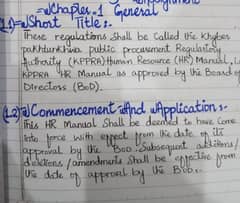 Chapter.1 General
(1.1) Short Title:-
These regulations shall be Called the Khyber
pakhtunkhwa public procurement Regulatory
Authority (KPPRA) Human Resource (HR) Manual,
KPPRA HR Manual as approved by the Board of
Directors (BoD).
(1.2) Commencement And Application:-
This HR Manual Shall be deemed to have Come
Into force with effect from the date of its
approval by the BoD. Subsequent additions/
deletions/amendments shall be effective from
the date of approval by the BoD.